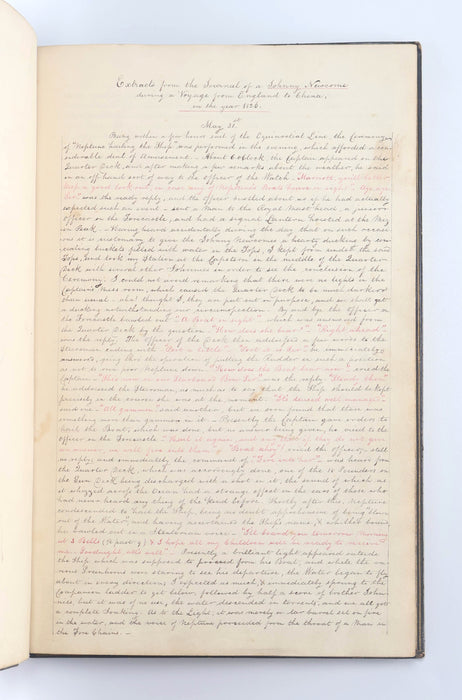 Extracts from the Journal of a Johnny Newcome
during a Voyage from England to China,
in the year 1826.
May 31st
Being within a few hours sail of the Equinoctial Line the Ceremony
of "Neptune hailing the Ship" was performed in the evening, which afforded a con-
siderable deal of Amusement. About 6 o'Clock the Captain appeared on the
Quarter Deck, and after making a few remarks about the weather, he said
in an off hand sort of way to the officer of the Watch
keep a good look out in case any of Neptune's Boats heave in sight". "Aye aye
Sir" was the ready reply, and the officer bustled about as if he had actually
expected such an event - sent a Man to the Royal Mast head, a junior
officer on the Forecastle, and had a signal Lantern hoisted at the Miz-
en Peak. - Having heard accidentally during the day, that on such occas-
ions it is customary to give the Johnny Newcomes a hearty ducking by con-
cealing buckets filled with water in the Tops, I kept from under the said
Tops, and took my Station at the Capstern in the middle of the Quarter
Deck with several other Johnnies in order to see the conclusion of the
Ceremony. I could not avoid remarking that there were no lights in the
Captain's Mess-room, which caused the Quarter Deck to be more dark
than usual - aha! thought I, they are put out on purpose, and we shall get
a ducking notwithstanding our
the Forecastle bawled out "A Boat in sight" which was answered from
the Quarter Deck by the question "How does she bear?" "Right ahead"
was the reply. The officer of the Deck then addressed a few words to the
Steersman ending with
answered, giving this the operation of putting the Rudder in such a position
as not to run poor Neptune down. "How does the Boat bear now" cried the
Captain -
he addressed the Steersman, as much as to say that the Ship should be kept
precisely in the course she was at the moment.
said one - "All gammon" said another, but we soon found that there was
something more than gammon in it - Presently the Captain gave orders to
hail the Boat, which was done, but no answer being given, he cried to the
officer in the Forecastle - "Hail it again, and say that if they do not give
an answer, we will fire into them" - "Boat ahoy" cried the officer - still
no reply; and immediately the command of "Fire into her" was heard from
the Quarter Deck, which was accordingly done, one of the 18 Pounders on
the Gun Deck being discharged with a shot in it, the sound of which as
it whizzed across the Ocean had a strange effect on the ears of those who
had never heard any thing of the kind before. Shortly after this, Neptune
condescended to hail the Ship, being no doubt apprehensive of being blown
out of the Water, and having ascertained the Ship's name, & whither bound,
he bawled out in a Stentorian voice - "I'll board you tomorrow morning
at 3 Bells I hope all my children will be ready to receive
me. Goodnight all well" - Presently a brilliant light appeared outside
the Ship which was supposed to proceed from his Boat, and while the va-
rious Greenhorns were staring to see his departure, the Water began to fly
about in every direction; I expected as much, & immediately sprang to the
Companion ladder to get below, followed by half a score of brother John-
nies, but it was of no use, the water descended in torrents, and we all got
a complete Soaking. As to the Light, it was merely a tar barrel set on fire
in the water, and the voice of Neptune proceeded from the throat of a Man in
the Fore Chains. -